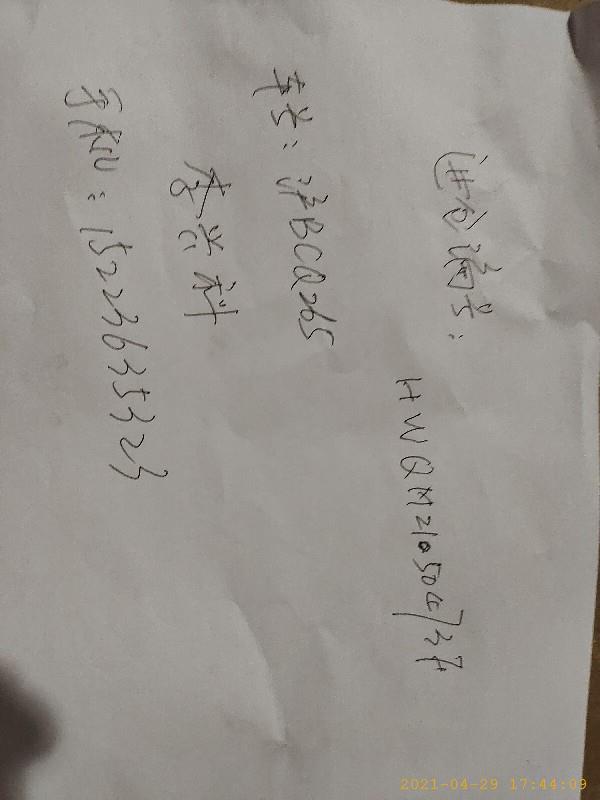 进仓编号:
车号:沪BCQ265
李兴科
手机:15223635323
2021-04-29 17:44:09